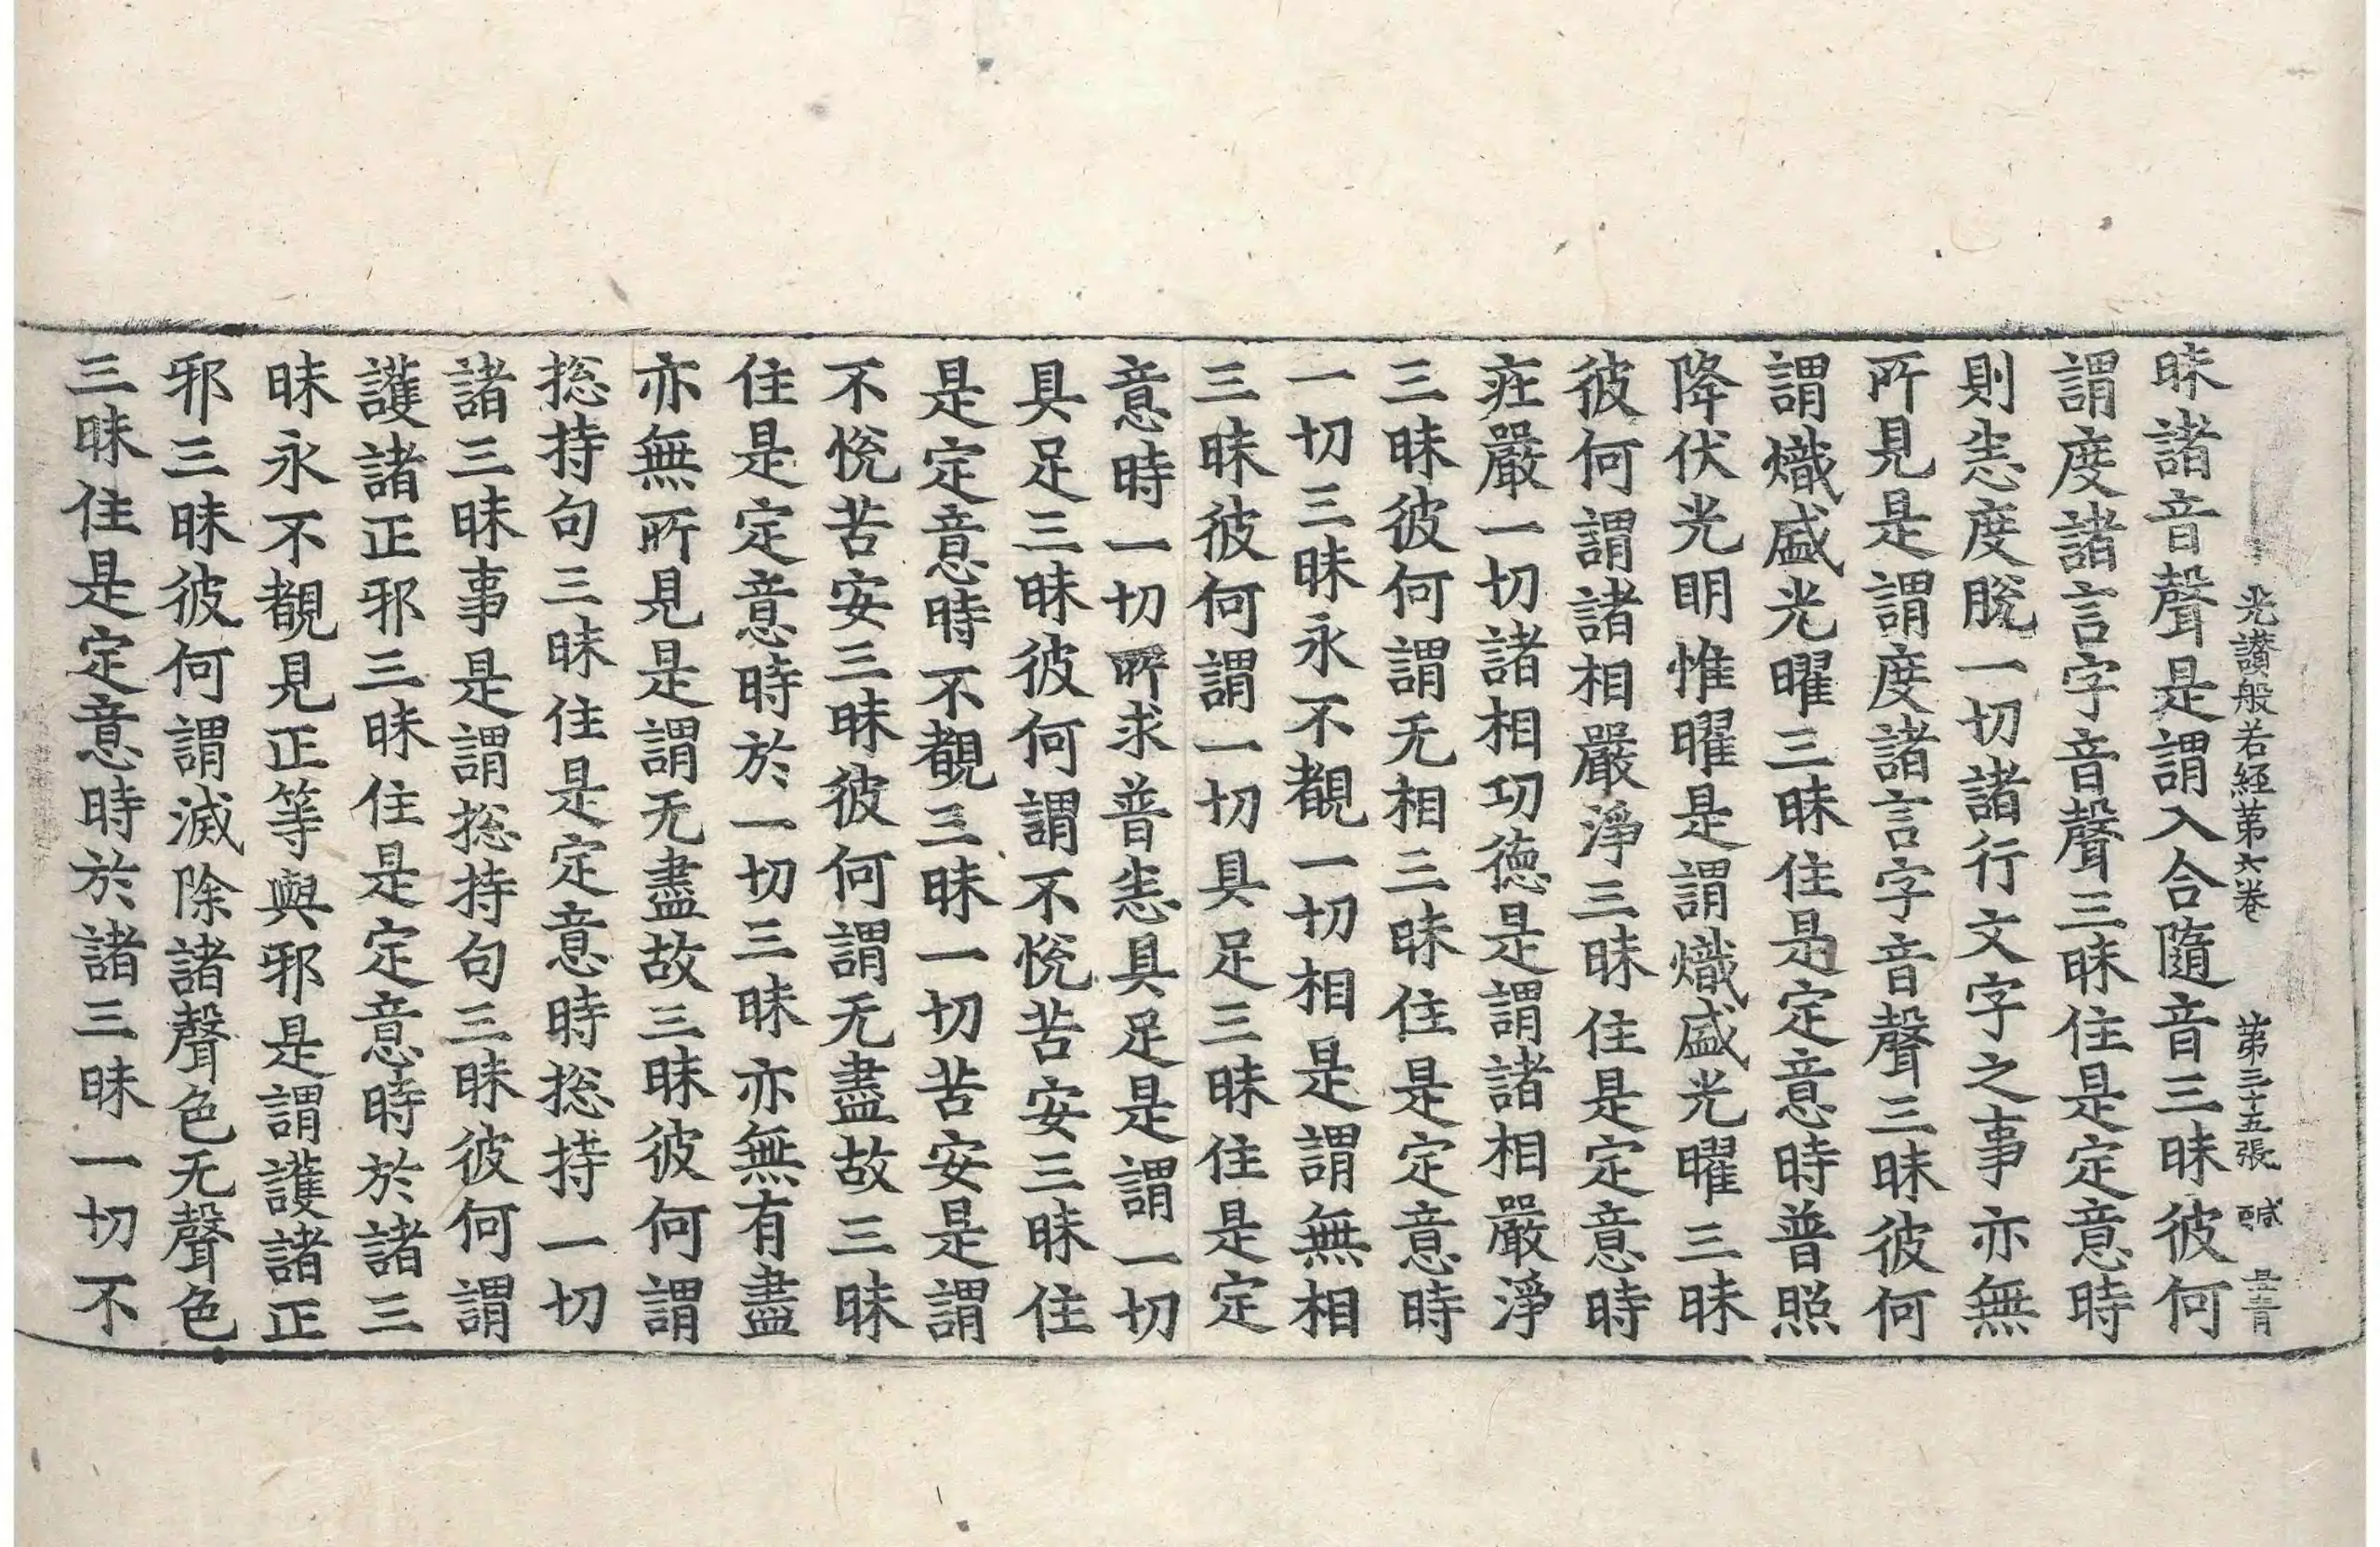 光讃般若経第六巻 第三十五張 醎
昧諸音聲是謂入合隨音三昧彼何
謂度諸言字音聲三昧住是定意時
則悉度脫一切諸行文字之事亦無
所見是謂度諸言字音聲三昧彼何
謂熾盛光曜三昧住是定意時普照
降伏光明惟曜是謂熾盛光曜三昧
彼何謂諸相嚴淨三昧住是定意時
疘嚴一切諸相功德是謂諸相嚴淨
三昧彼何謂无相三昧住是定意時
一切三昧永不覩一切相是謂無相
三昧彼何謂一切具足三昧住是定
意時一切所求普悉具足是謂一切
具足三昧彼何謂不悅苦安三昧住
是定意時不覩三昧一切苦安是謂
不悅苦安三昧彼何謂无盡故三昧
住是定意時於一切三昧亦無有盡
亦無所見是謂无盡故三昧彼何謂
捴持句三昧住是定意時捴持一切
諸三昧事是謂捴持句三昧彼何謂
護諸正邪三昧住是定意時於諸三
昧永不覩見正等與邪是謂護諸正
邪三昧彼何謂滅除諸聲色无聲色
三昧住是定意時於諸三昧一切不